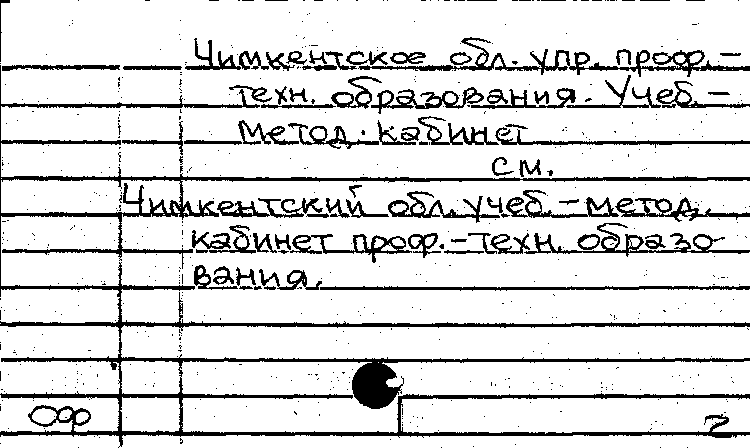 Чимкентское обл. упр. проф.-
техн. образования. Учеб.-
метод. кабинет
см.
Чимкентский обл. учеб.-метод.
кабинет проф.-техн. образо-
вания.
Офр 2